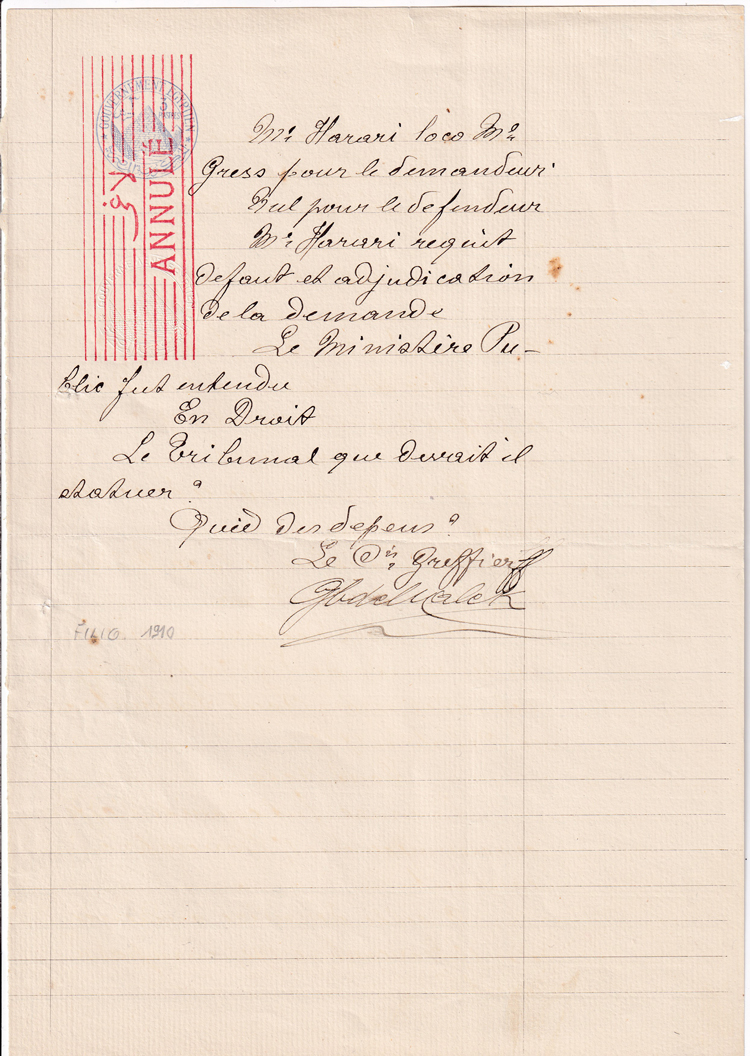 GOUVERNEMENT EGYPTIEN
ANNULÉ
لاغى
Me Harari loco Me
Gress pour le demandeur
Nul pour le defendeur
Me Harari requit
defaut et adjudication
de la demande
Le Ministère Pu-
blic fut entendu
En Droit
Le Tribunal que devrait il
statuer?
Quid des depens?
Le Cis Greffier
Abdelmalek
FILIO 1910